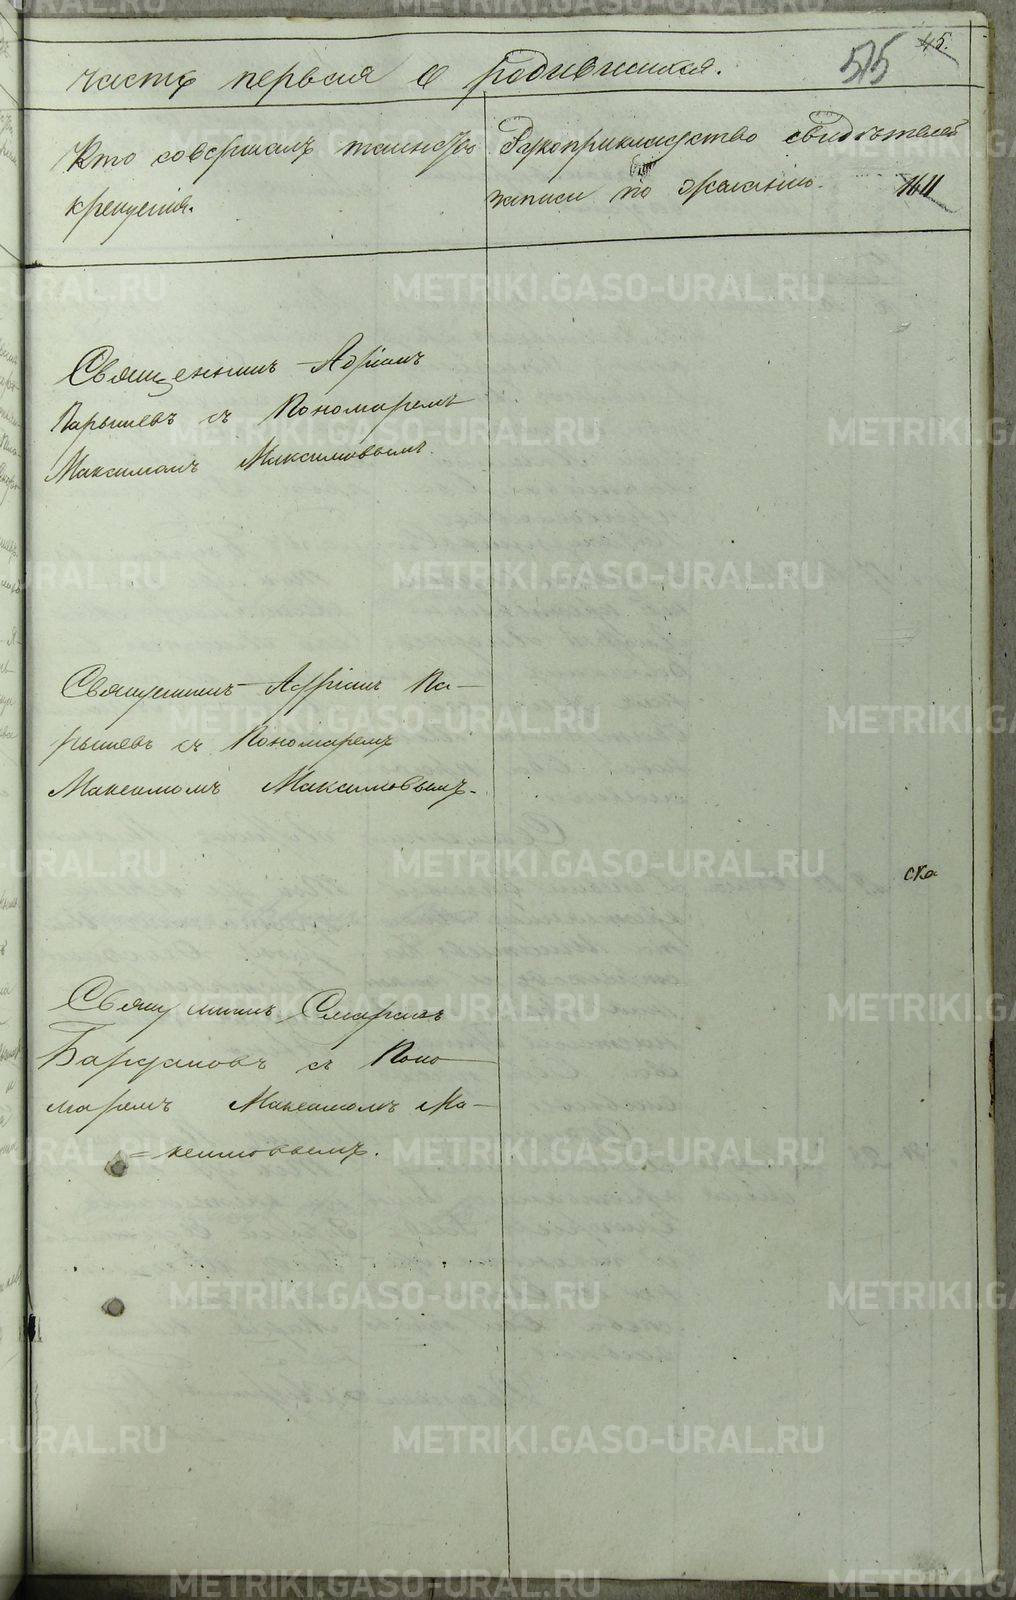 часть первая о родившихся.
515
45.
Кто совершалъ таинство
крещенія.
Рукоприкладство свидѣтелей
записи по желанію.
1611
Священникъ Адріанъ
Парышевъ съ Пономаремъ
Максимомъ Максимовымъ.
Священникъ Адріанъ Па-
рышевъ съ Пономаремъ
Максимомъ Максимовымъ.
ска
Священникъ
съ Поно
маремъ Максимомъ Ма-
=ксимовымъ.
METRIKI.GASO-URAL.RU